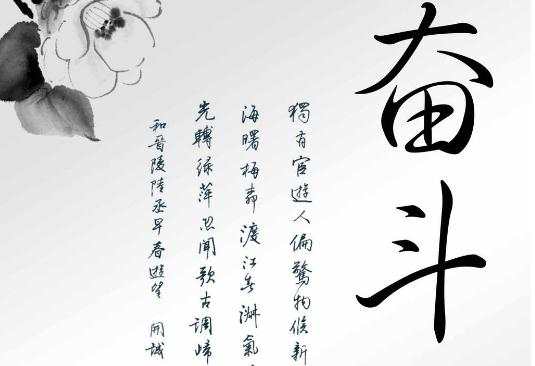 奋斗
獨有宦遊人偏驚物候新
海曙梅渡江春淑氣
光轉綠萍忽聞歌古調
和晉陵陸丞早春遊望 開誠